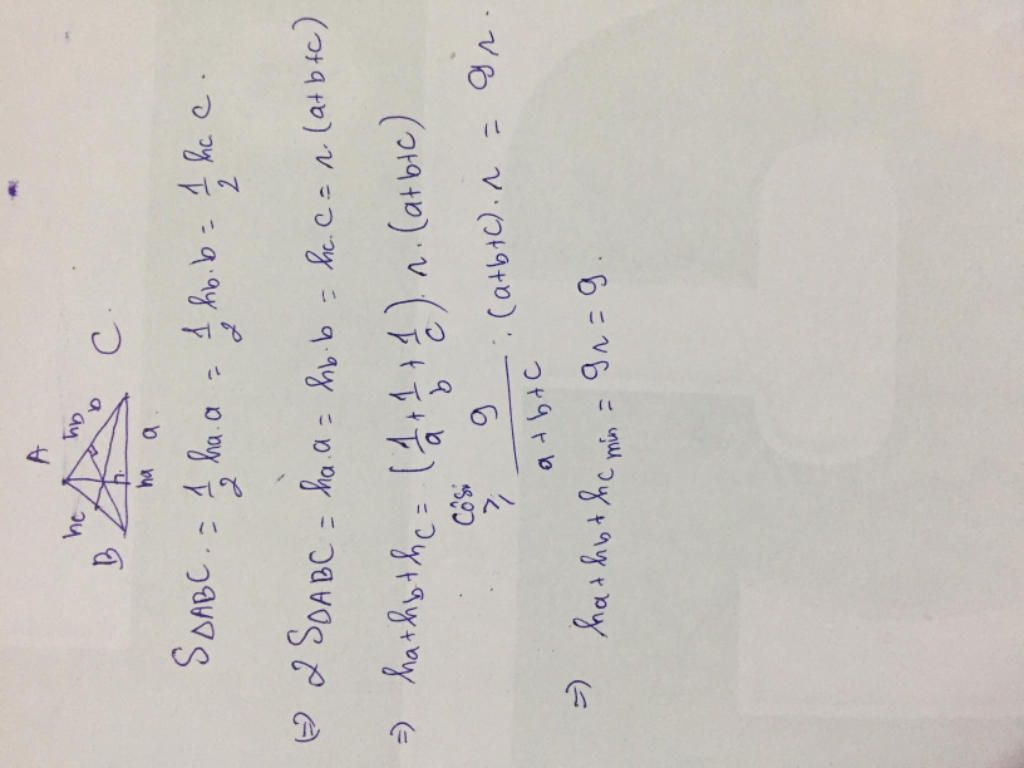 A
hc hb b
B ha a C.
S∆ABC. = 1/2 ha.a = 1/2 hb.b = 1/2 hc.c.
(=) 2S∆ABC = ha.a = hb.b = hc.c = r.(a+b+c)
=) ha+hb+hc = (1/a + 1/b + 1/c).r.(a+b+c)
Côsi ≥ 9/(a+b+c) .(a+b+c).r = 9r.
=) ha+hb+hc min = 9r = 9.